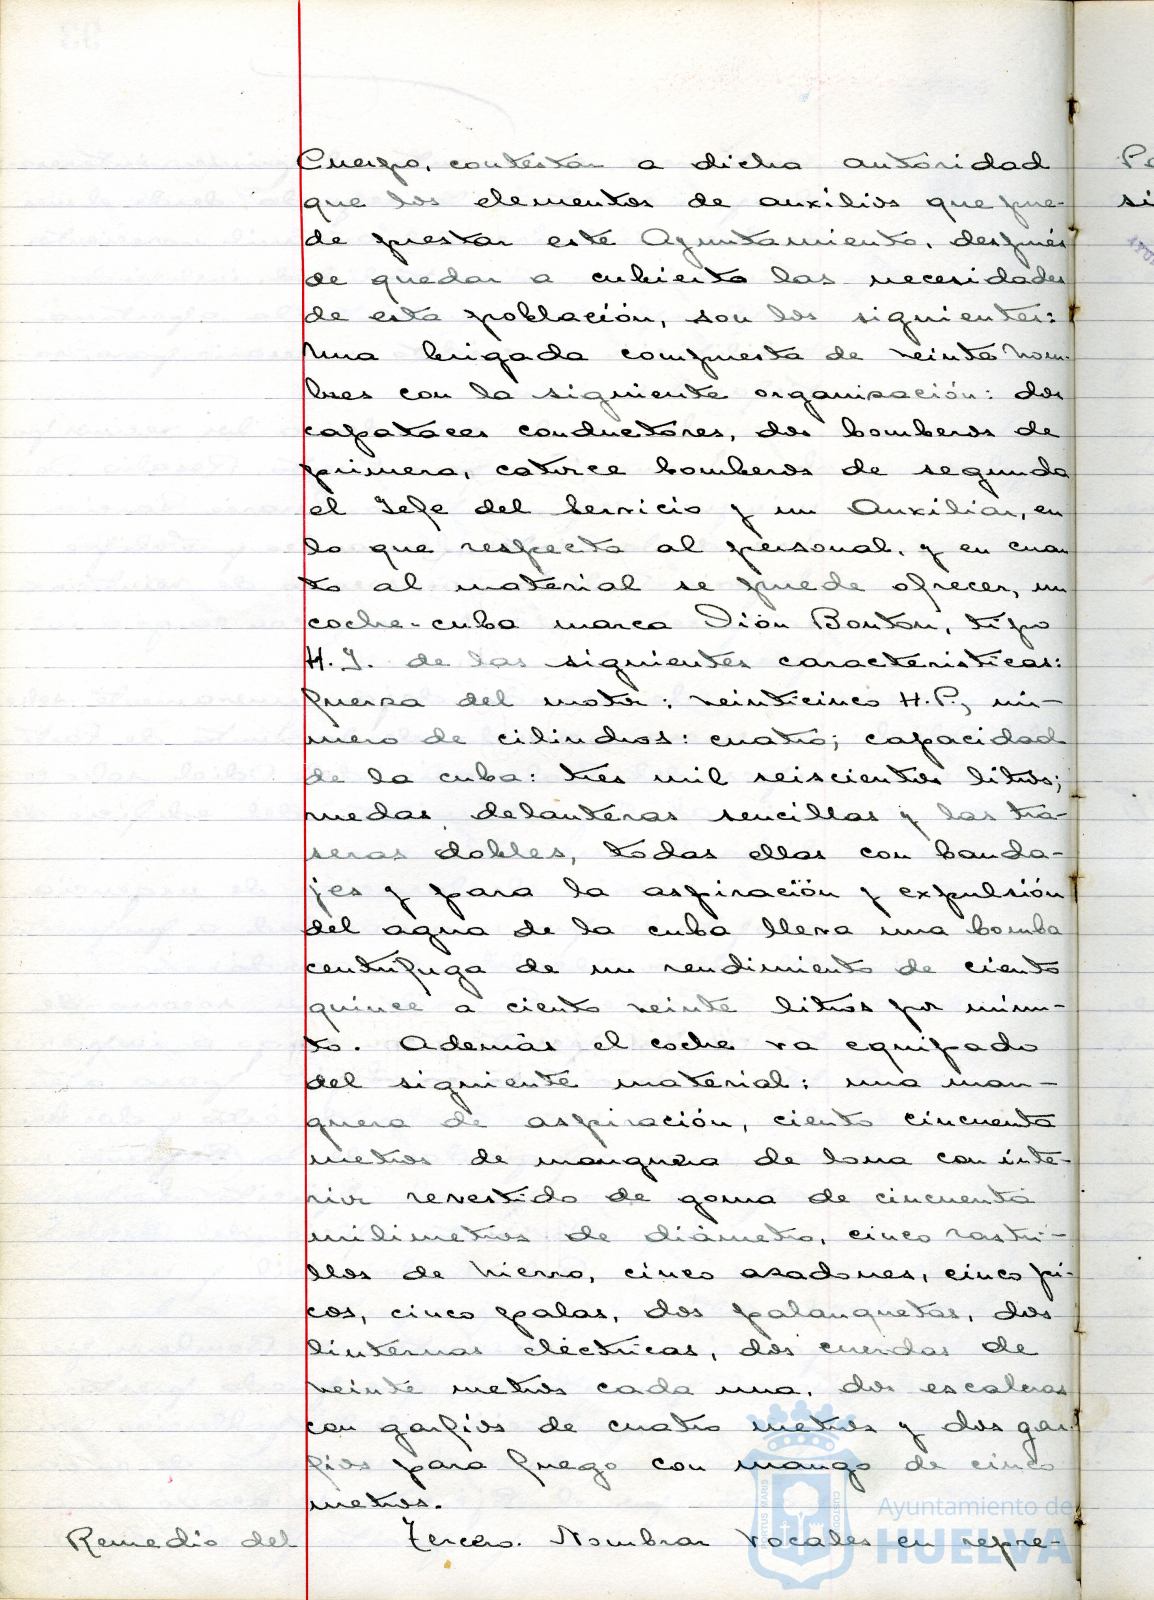 Cuerpo, contestar a dicha autoridad
que los elementos de auxilios que pue-
de prestar este Ayuntamiento, después
de quedar a cubierto las necesidades
de esta población, son los siguientes:
Una brigada compuesta de veinte hom-
bres con la siguiente organización: dos
capataces conductores, dos bomberos de
primera, catorce bomberos de segunda
el Jefe del Servicio y un Auxiliar, en
lo que respecta al personal, y en cuan
to al material se puede ofrecer, un
coche-cuba marca Dión Bouton, tipo
H.J. de las siguientes características:
fuerza del motor: veinticinco H.P., nú-
mero de cilindros: cuatro; capacidad
de la cuba: tres mil seiscientos litros;
ruedas, delanteras sencillas y las tra-
seras dobles, todas ellas con banda-
jes y para la aspiración y expulsión
del agua de la cuba lleva una bomba
centrífuga de un rendimiento de ciento
quince a ciento veinte litros por minu-
to. Además el coche va equipado
del siguiente material: una man-
guera de aspiración, ciento cincuenta
metros de manguera de lona con inte-
rior revestido de goma de cincuenta
milimetros de diámetro, cinco rastri-
llos de hierro, cinco azadones, cinco pi-
cos, cinco palas, dos palanquetas, dos
linternas eléctricas, dos cuerdas de
veinte metros cada una, dos escaleras
con garfios de cuatro metros y dos gar-
fios para fuego con mango de cinco
metros.
Remedio del Tercero. Nombrar Vocales en repre-
Ayuntamiento de
HUELVA